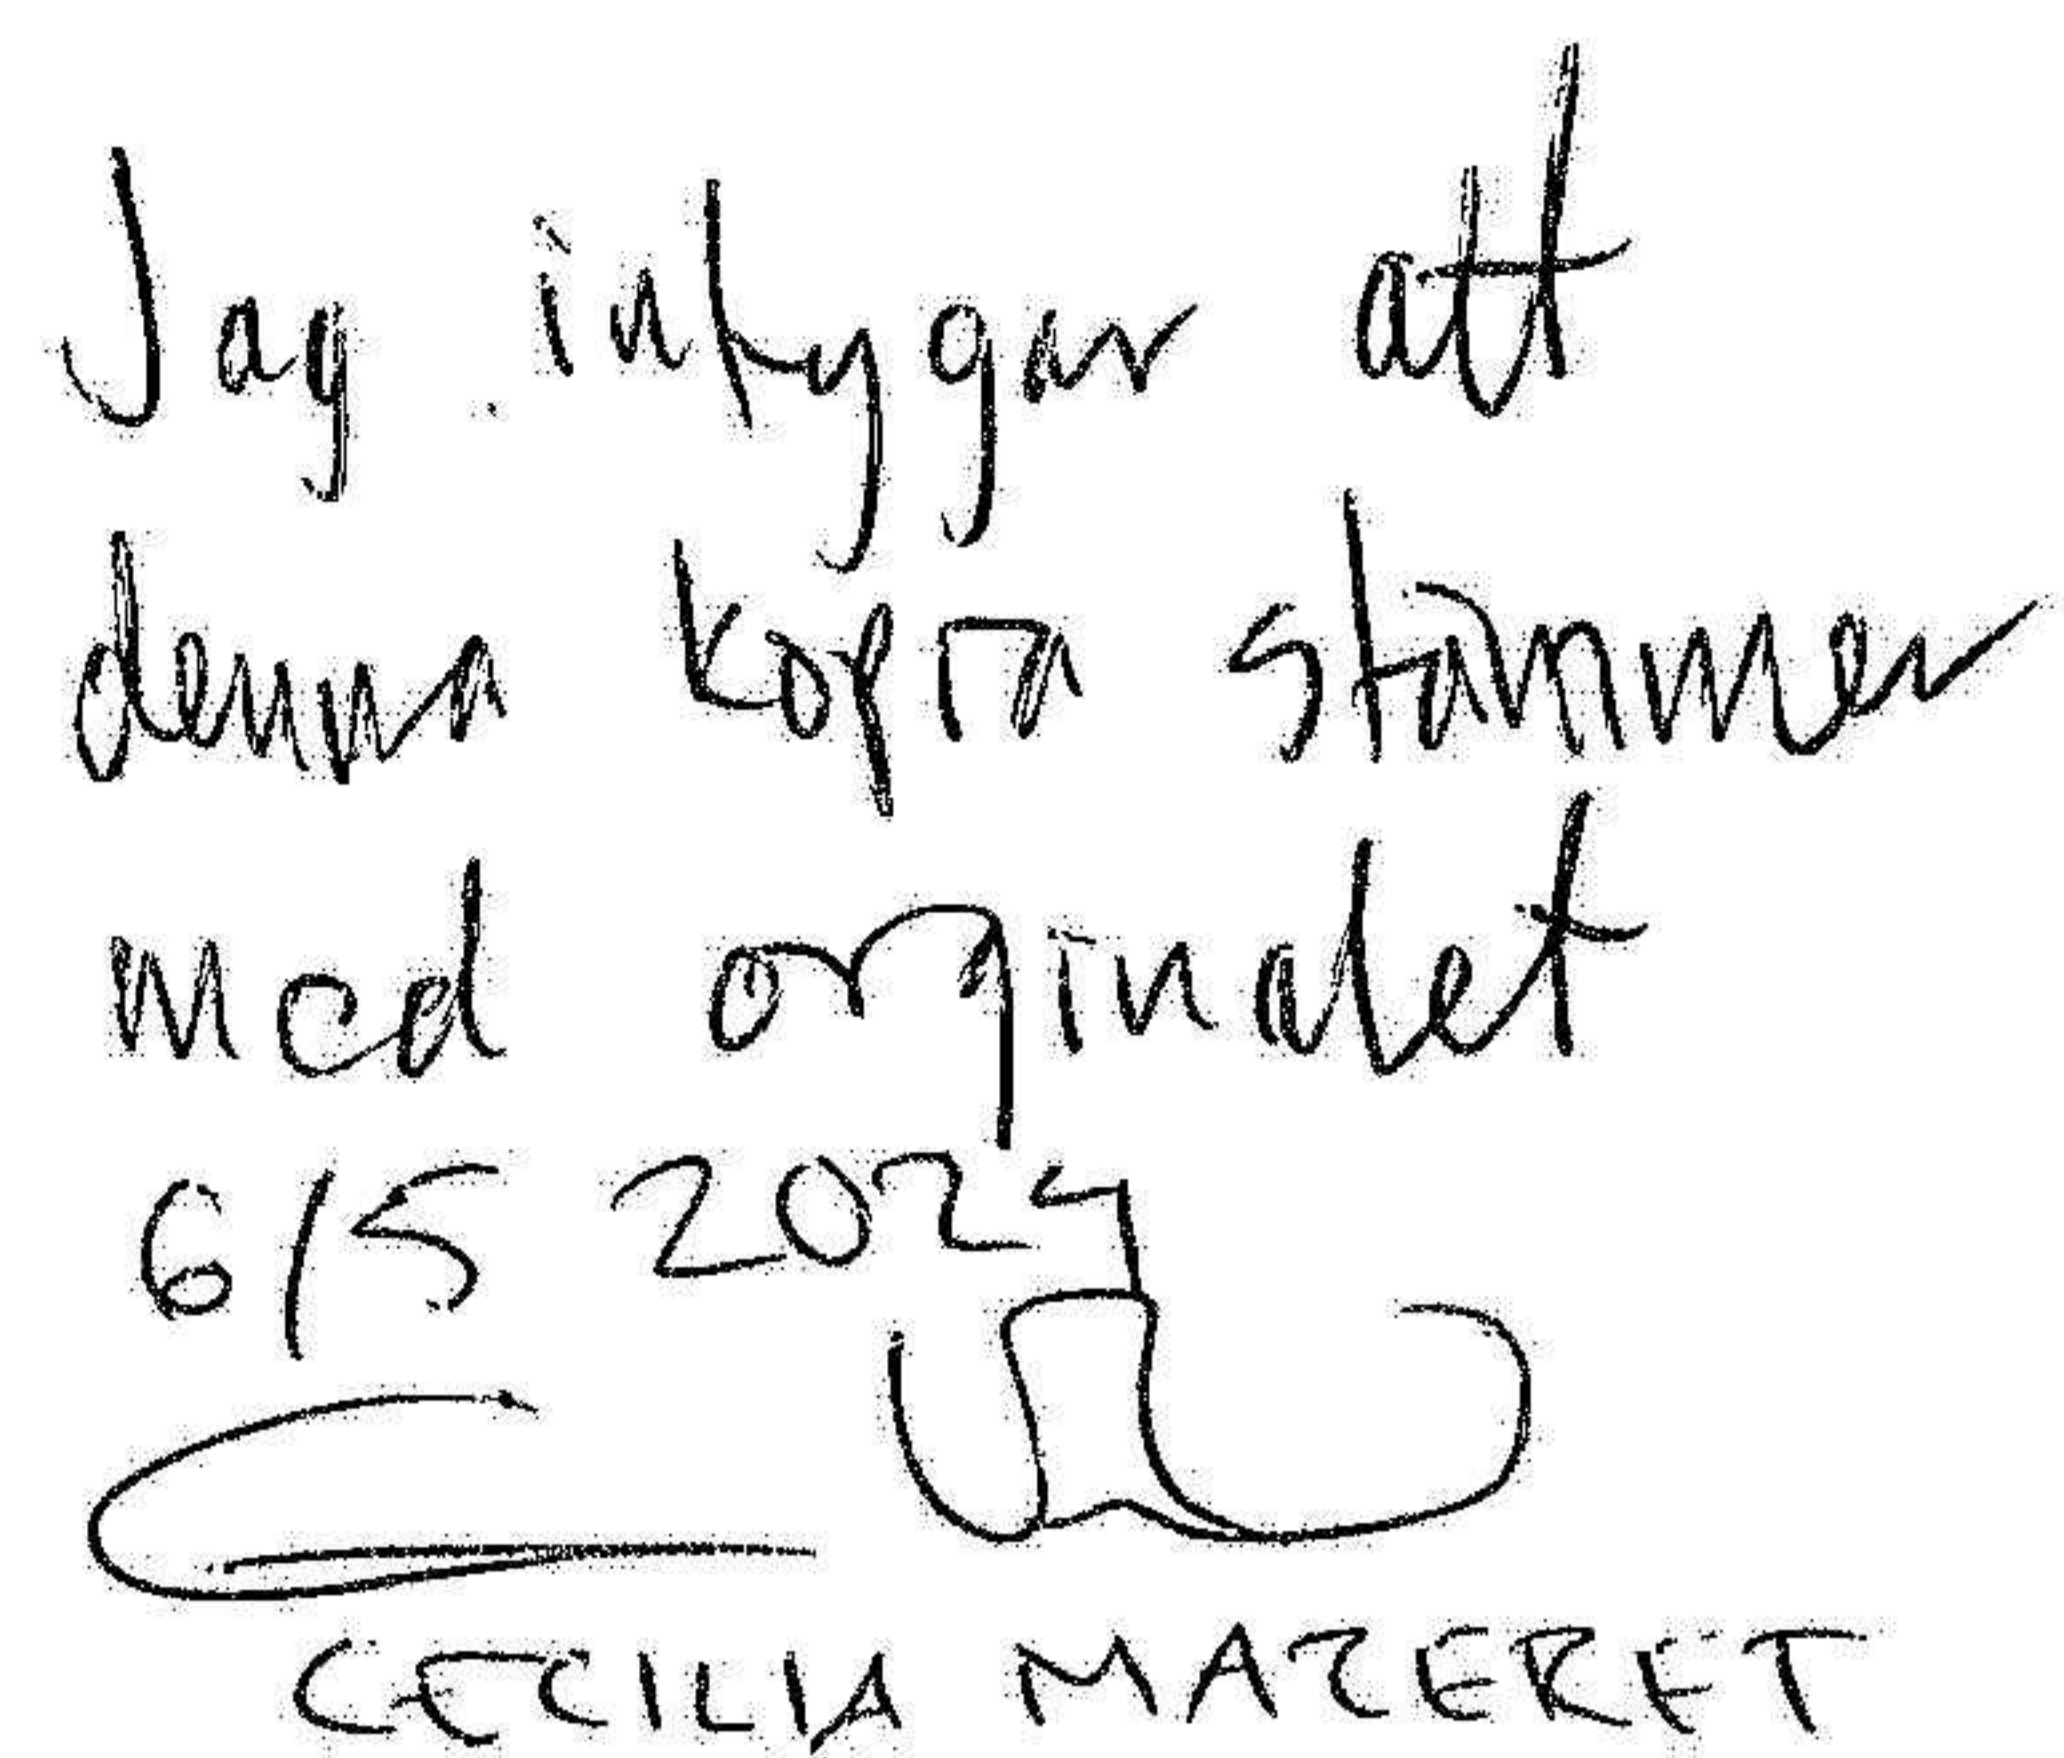 Jag intygar att
denna kopia stämmer
med orginalet
6/5 2024
CECILIA MAZERET